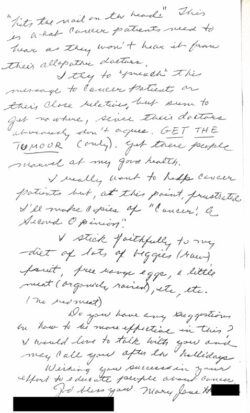 "hits the nail on the head" This
is what cancer patients need to
hear as they won't hear it from
their allopathic doctors.
I try to "preach" this
message to cancer patients or
their close relatives, but seem to
get nowhere, since their doctors
obviously don't agree. GET THE
TUMOUR (only). Yet these people
marvel at my good health.
I really want to help cancer
patients but, at this point, frustrated
I'll make copies of "Cancer: A
Second Opinion".
I stick faithfully to my
diet of lots of veggies (raw)
fruit, free range eggs, a little
meat (organically raised), etc, etc.
(no red meat)
Do you have any suggestions
on how to be more effective in this?
I would love to talk with you and
may call you after the holidays.
Wishing you success in your
effort to educate people around cancer
God bless you. Mary Jane H